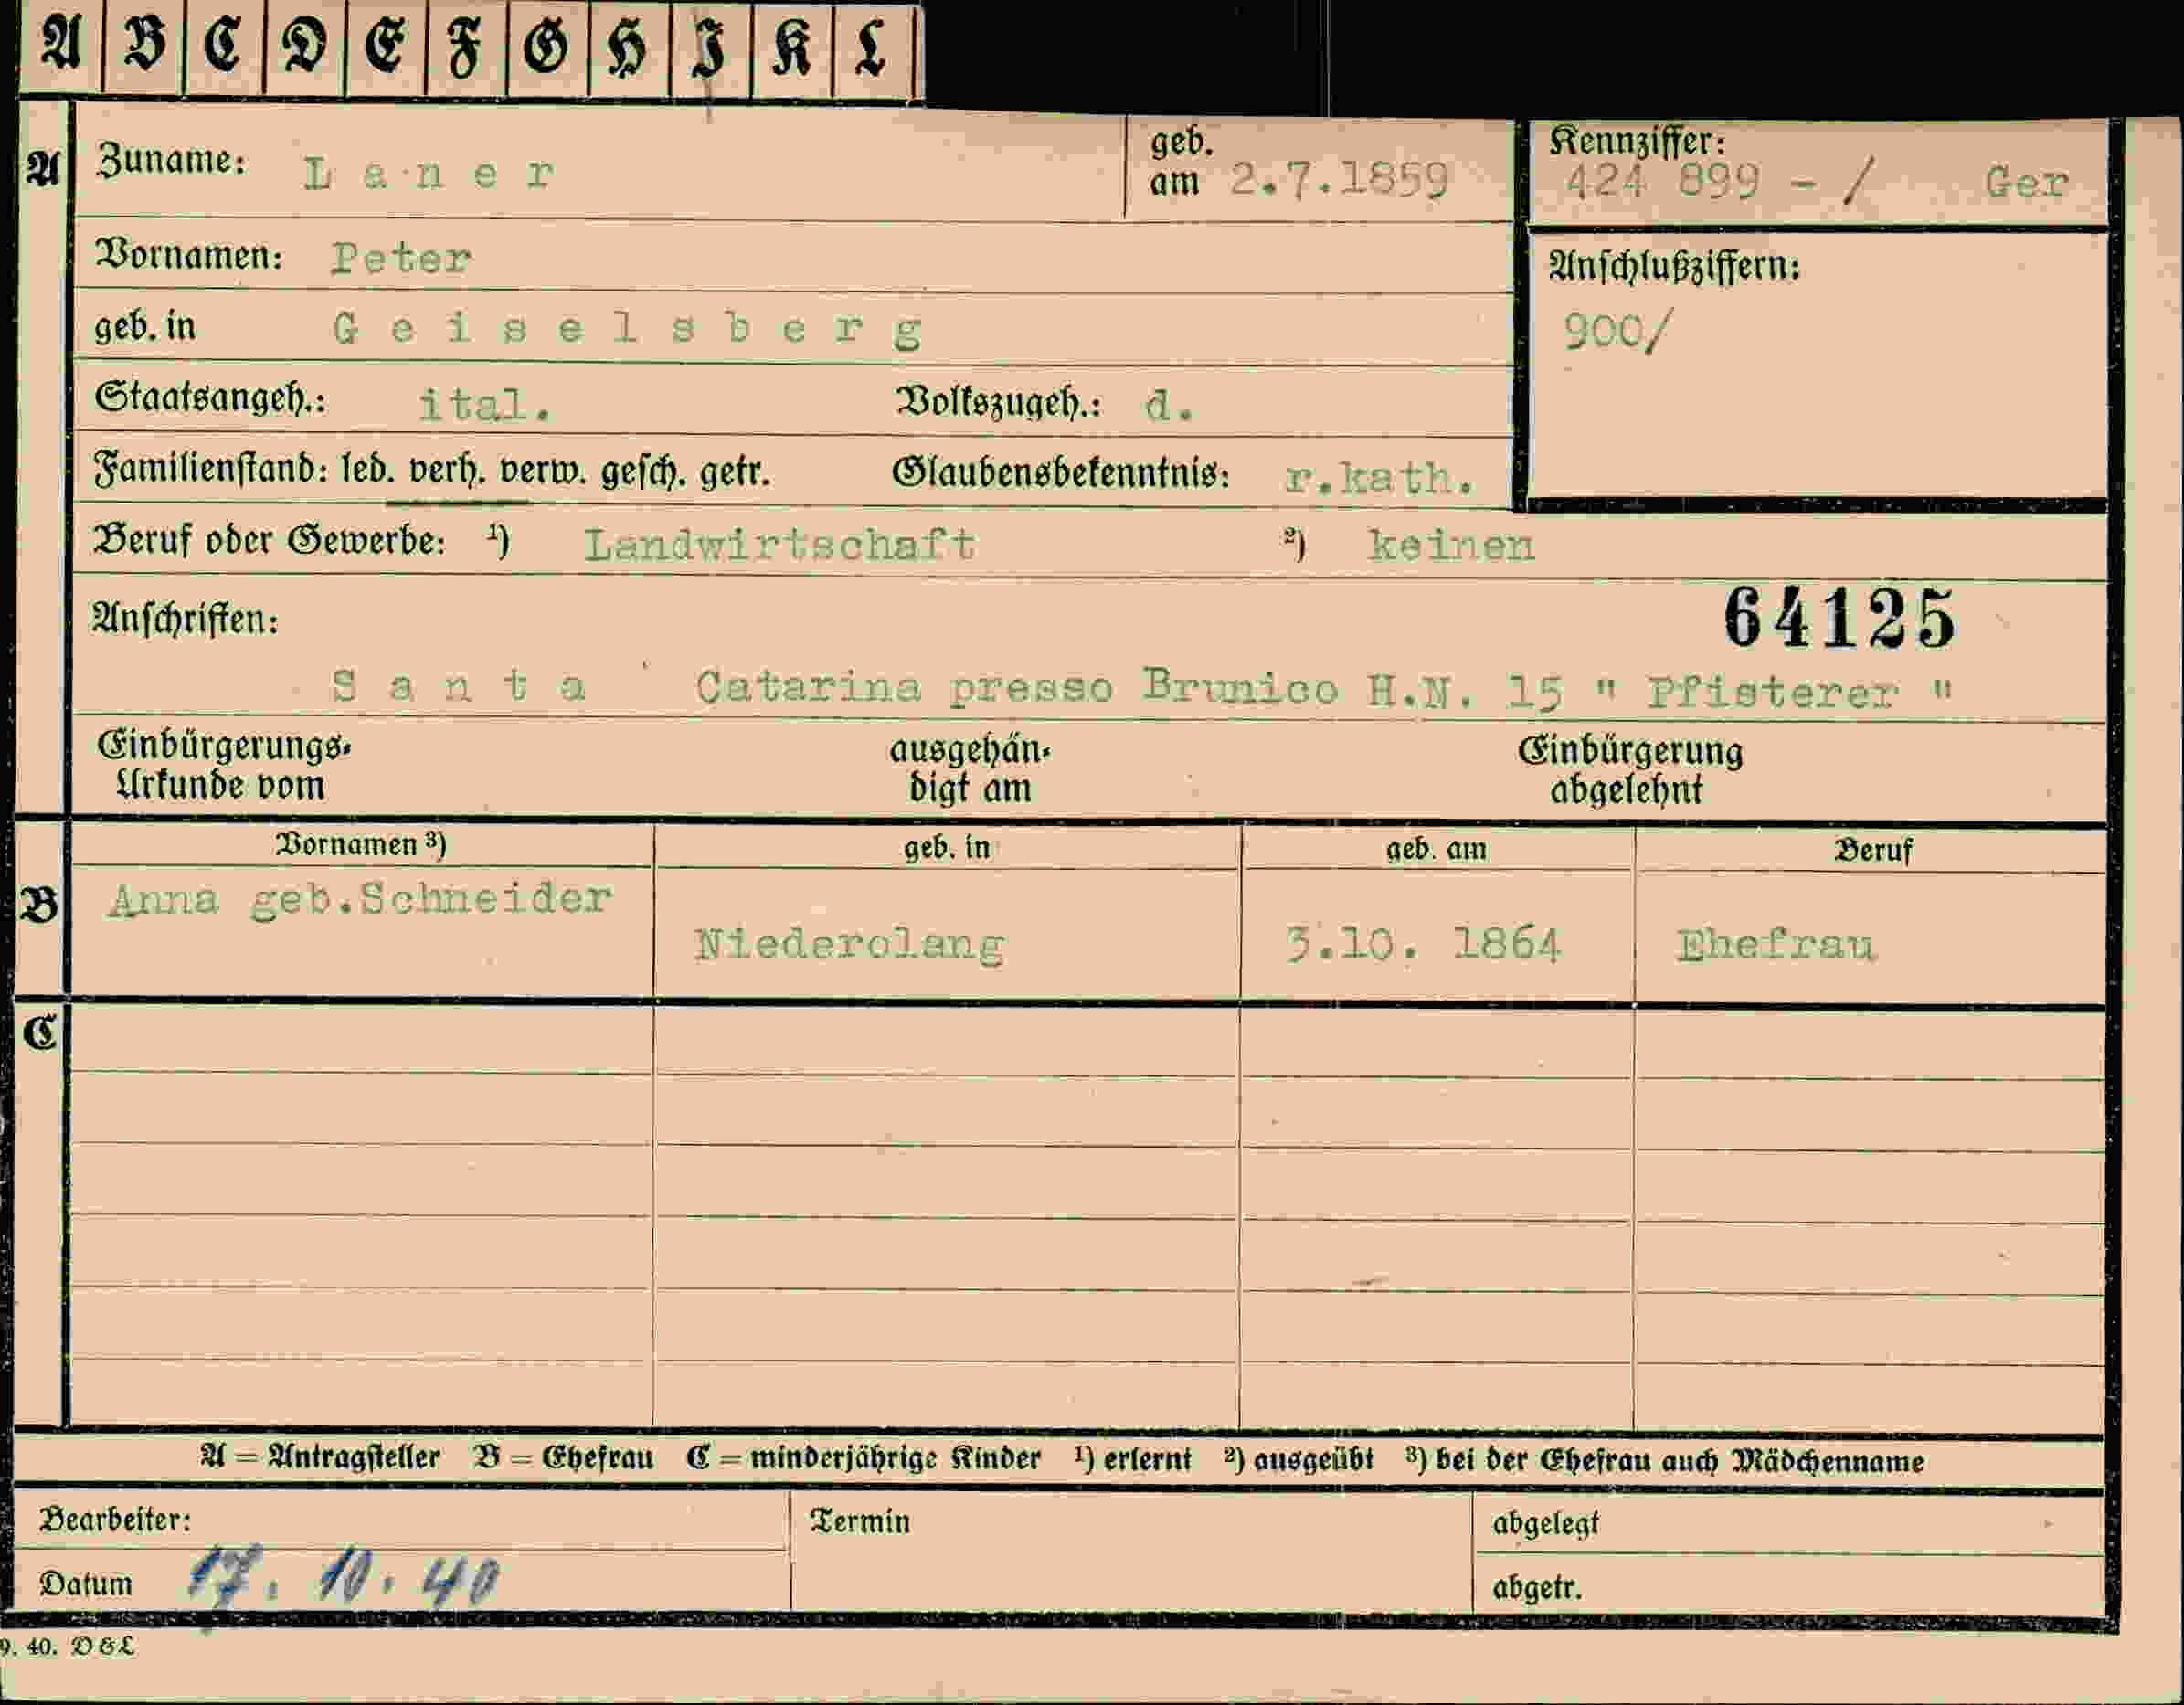 A B C D E F G H I K L
A Zuname: Laner geb. am 2.7.1859 Kennziffer: 424 899 - / Ger
Vornamen: Peter Anschlußziffern:
geb. in Geiselsberg 900/
Staatsangeh.: ital. Volkszugeh.: d.
Familienstand: led. verh. verw. gesch. getr. Glaubensbekenntnis: r.kath.
Beruf oder Gewerbe: ¹) Landwirtschaft ²) keinen
Anschriften: 64125
Santa Catarina presso Brunico H.N. 15 " Pfisterer "
Einbürgerungs- ausgehän- Einbürgerung
Urkunde vom digt am abgelehnt
Vornamen ³) geb. in geb. am Beruf
B Anna geb.Schneider
Niederolang 3.10. 1864 Ehefrau
C
A = Antragsteller B = Ehefrau C = minderjährige Kinder ¹) erlernt ²) ausgeübt ³) bei der Ehefrau auch Mädchenname
Bearbeiter: Termin abgelegt
Datum 17. 10. 40 abgetr.
9. 40. D&L